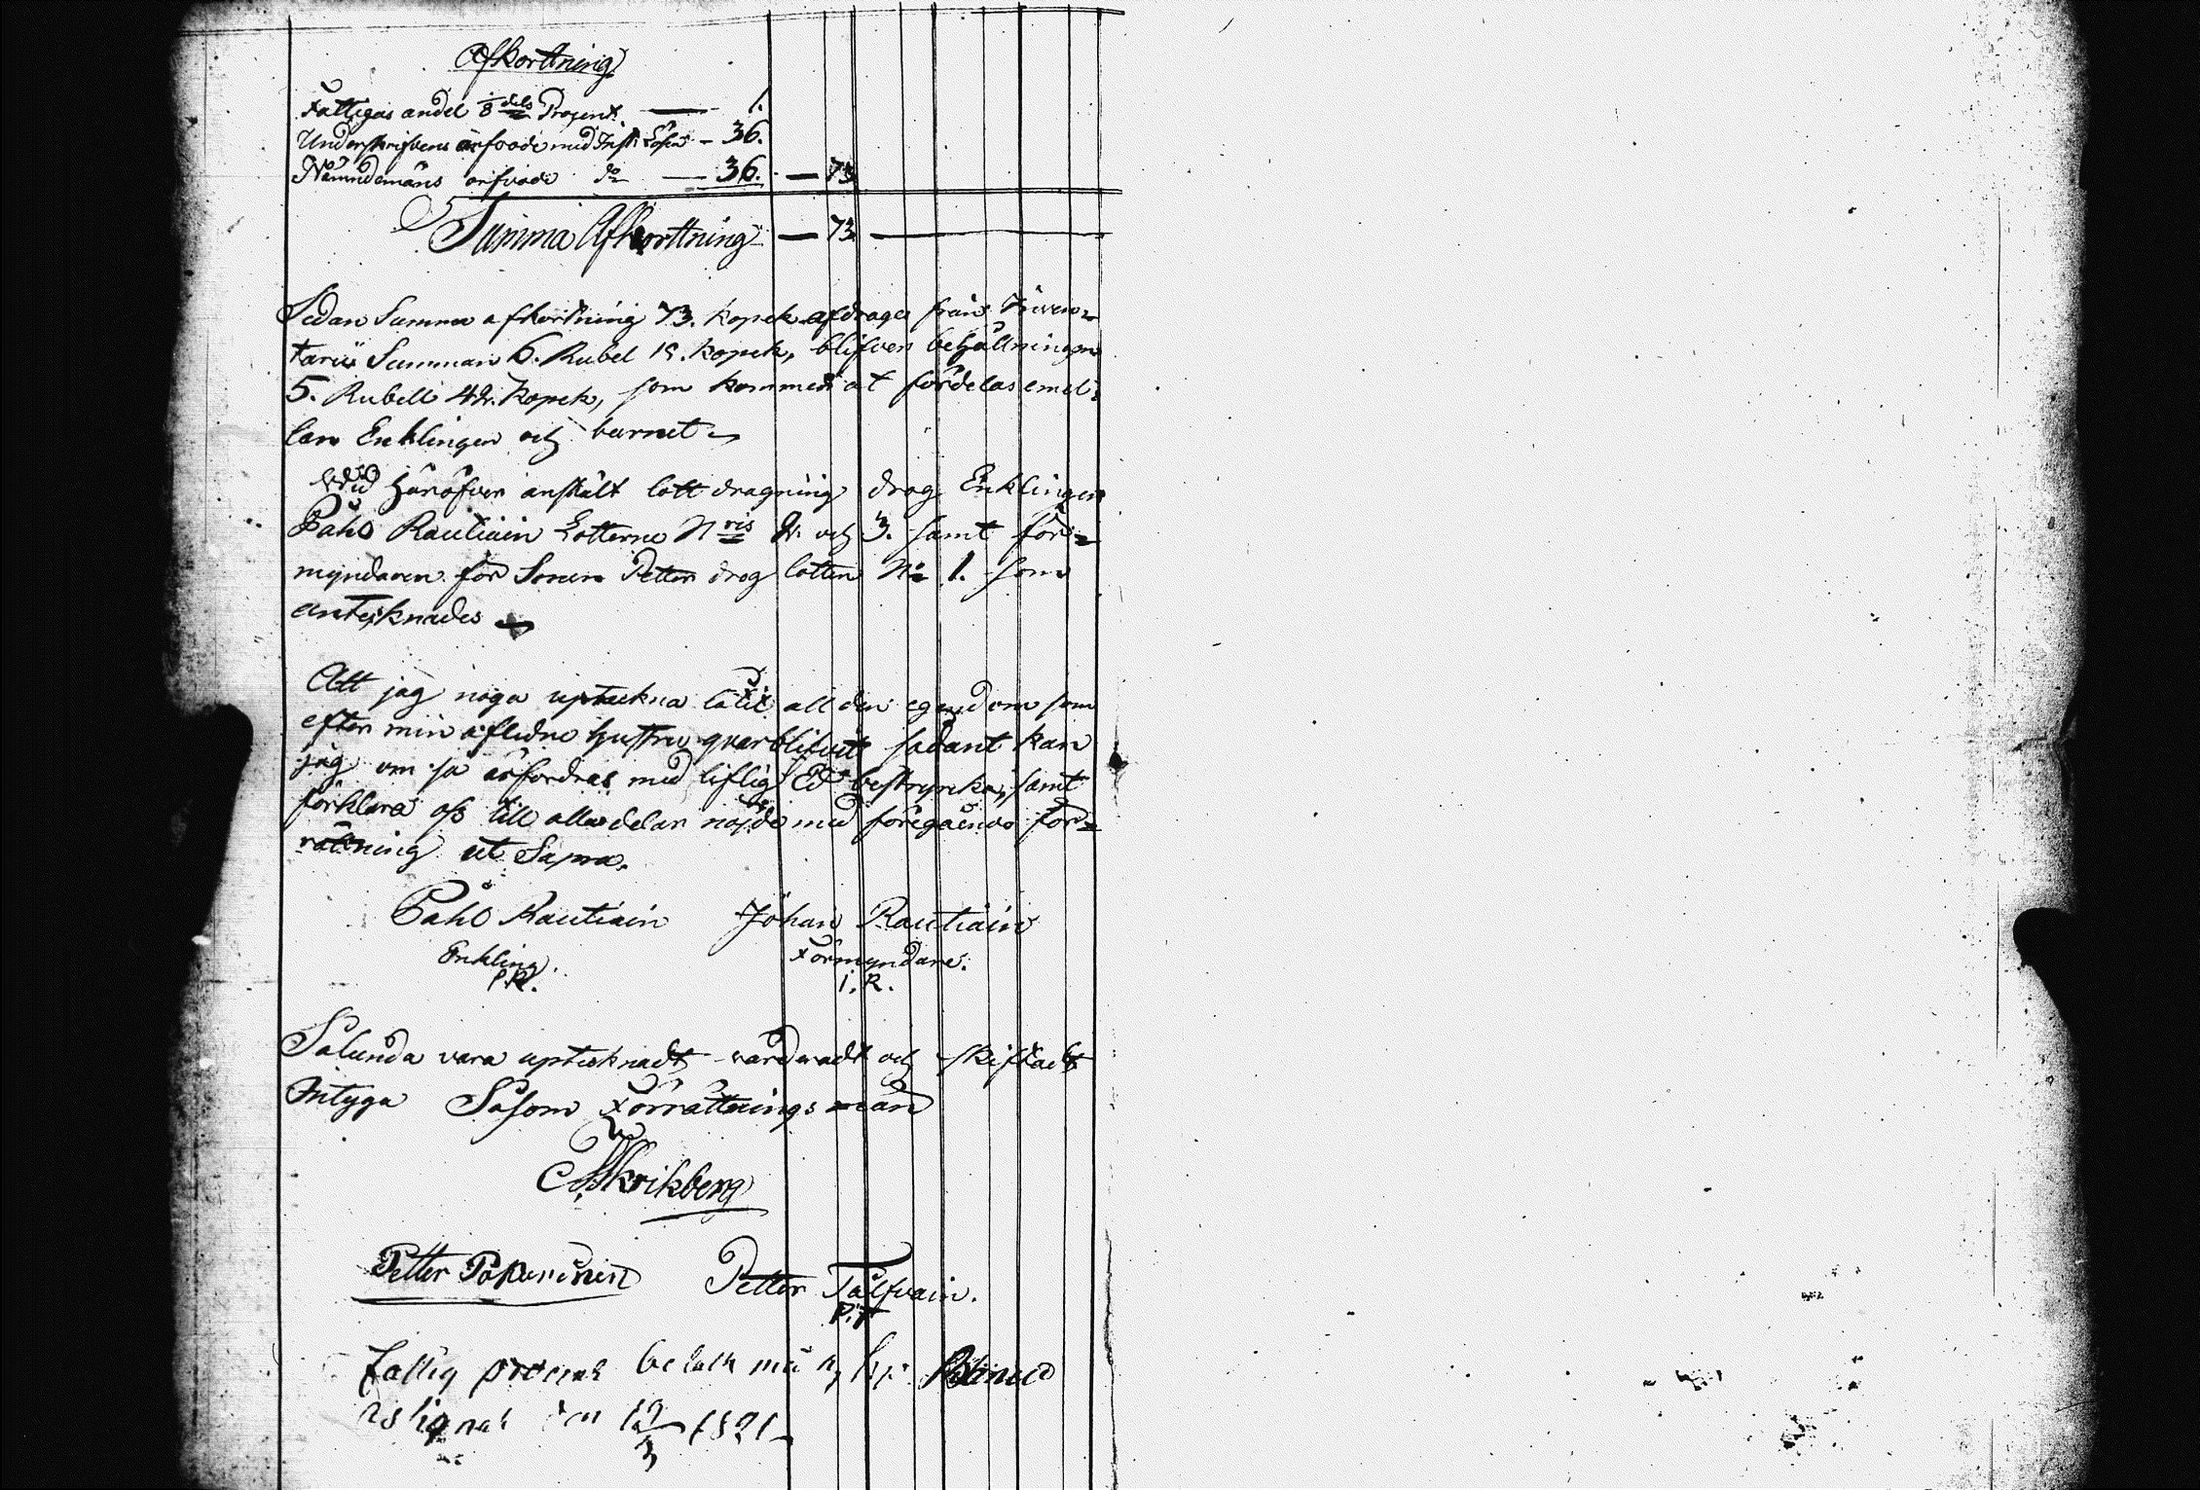 Afkorttning
Fattigas andel 1/8 dels Procent. — 1.
Underskrifvens arfvode med Inst. Lösen — 36.
Nämndemäns arfvode do — 36. — 73
Summa Afkorttning — 73 —
Sedan Summa afkortning 73. kopek afdrages från Inven=
tarii Summan 6. Rubel 15. kopek, blifver behållningen
5. Rubell 42. kopek, som kommer at fördelas emel=
lan Enklingen och barnet
Vid häröfver anstält lottdragning drog Enklingen
Påhl Rautiain Lotterne Nris 2. och 3. samt för=
myndaren för Sonen Petter drog lotten No 1. som
anteknades
Att jag noga upteckna låtit all den egendom som
efter min aflidne hustru qvarblifvit sådant kan
jag om så ärfordras med liflig Ed bestyrcka, samt
förklara oss till alla delar nöjde med föregående för=
rättning ut Supra.
Påhl Rautiain Johan Rautiain
Enkling. Förmyndare.
P.R. I.R.
Sålunda vara uptecknadt värderadt och skiftadt
Intyga Såsom Förrättnings män
Skrikberg
Petter Pakarinen Petter Talfvain.
P.T
fattig procent betalt med kop.
den 12/3 1821